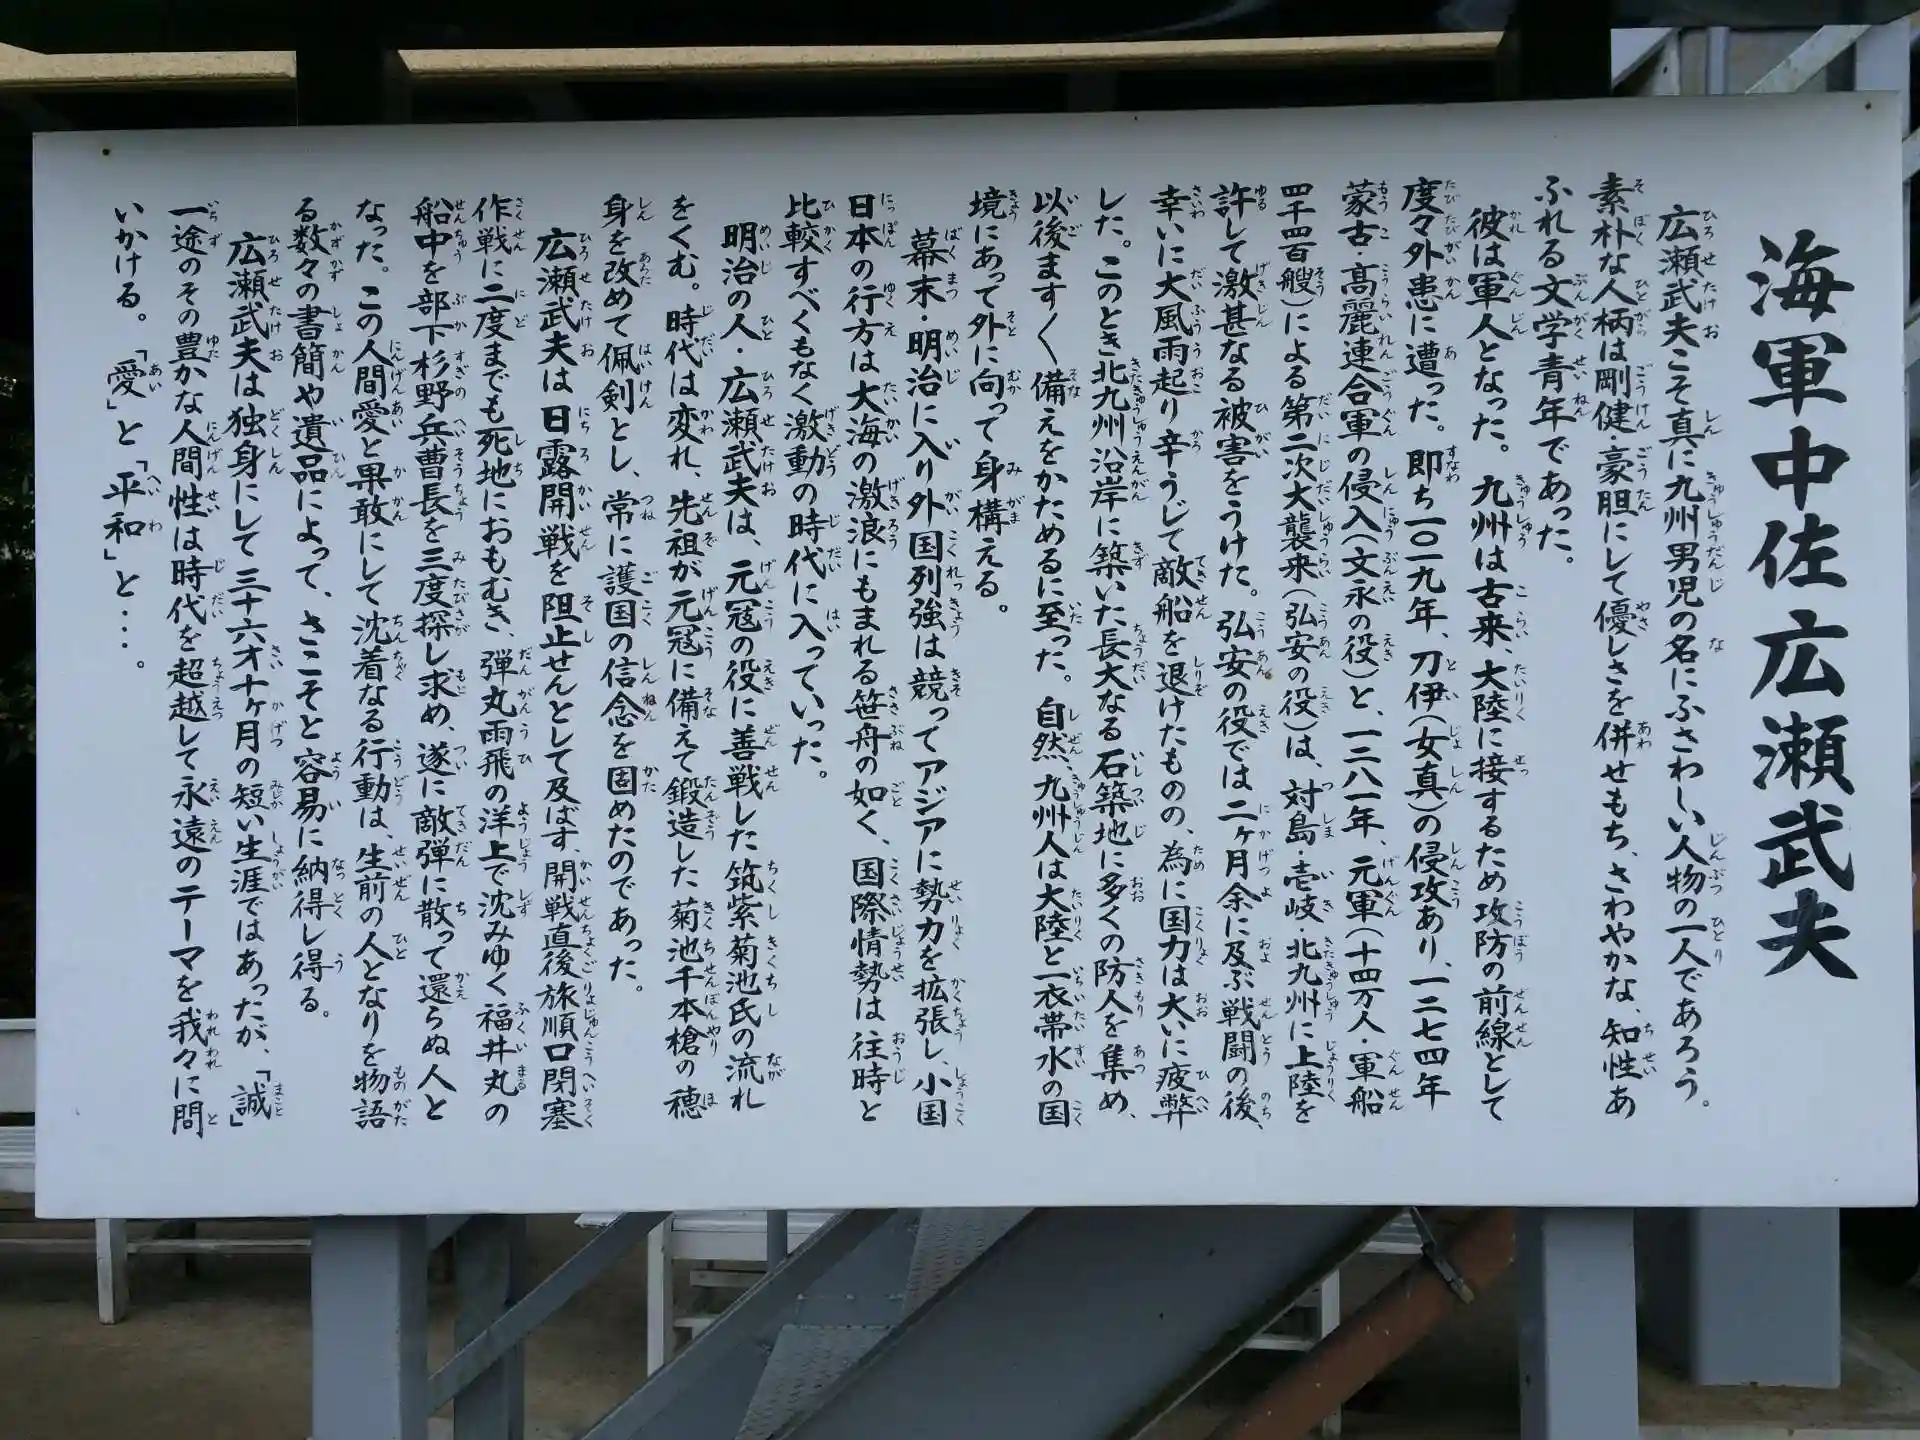 海軍中佐広瀬武夫
広瀬武夫こそ真に九州男児の名にふさわしい人物の一人であろう。
素朴な人柄は剛健・豪胆にして優しさを併せもち、さわやかな、知性あ
ふれる文学青年であった。
彼は軍人となった。九州は古来、大陸に接するため攻防の前線として
度々外患に遭った。即ち一〇一九年、刀伊(女真)の侵攻あり、一二七四年
蒙古・高麗連合軍の侵入(文永の役)と、一二八一年、元軍(十四万人・軍船
四千四百艘)による第二次大襲来(弘安の役)は、対島・壱岐・北九州に上陸を
許して激甚なる被害をうけた。弘安の役では二ヶ月余に及ぶ戦闘の後、
幸いに大風雨起り辛うじて敵船を退けたものの、為に国力は大いに疲弊
した。このとき北九州沿岸に築いた長大なる石築地に多くの防人を集め、
以後ます〱備えをかためるに至った。自然、九州人は大陸と一衣帯水の国
境にあって外に向って身構える。
幕末・明治に入り外国列強は競ってアジアに勢力を拡張し、小国
日本の行方は大海の激浪にもまれる笹舟の如く、国際情勢は往時と
比較すべくもなく激動の時代に入っていった。
明治の人・広瀬武夫は、元冦の役に善戦した筑紫菊池氏の流れ
をくむ。時代は変れ、先祖が元冦に備えて鍛造した菊池千本槍の穂
身を改めて佩剣とし、常に護国の信念を固めたのであった。
広瀬武夫は日露開戦を阻止せんとして及ばず、開戦直後旅順口閉塞
作戦に二度までも死地におもむき、弾丸雨飛の洋上で沈みゆく福井丸の
船中を部下杉野兵曹長を三度探し求め、遂に敵弾に散って還らぬ人と
なった。この人間愛と果敢にして沈着なる行動は、生前の人となりを物語
る数々の書簡や遺品によって、さこそと容易に納得し得る。
広瀬武夫は独身にして三十六才十ヶ月の短い生涯ではあったが、「誠」
一途のその豊かな人間性は時代を超越して永遠のテーマを我々に問
いかける。「愛」と「平和」と・・・・。